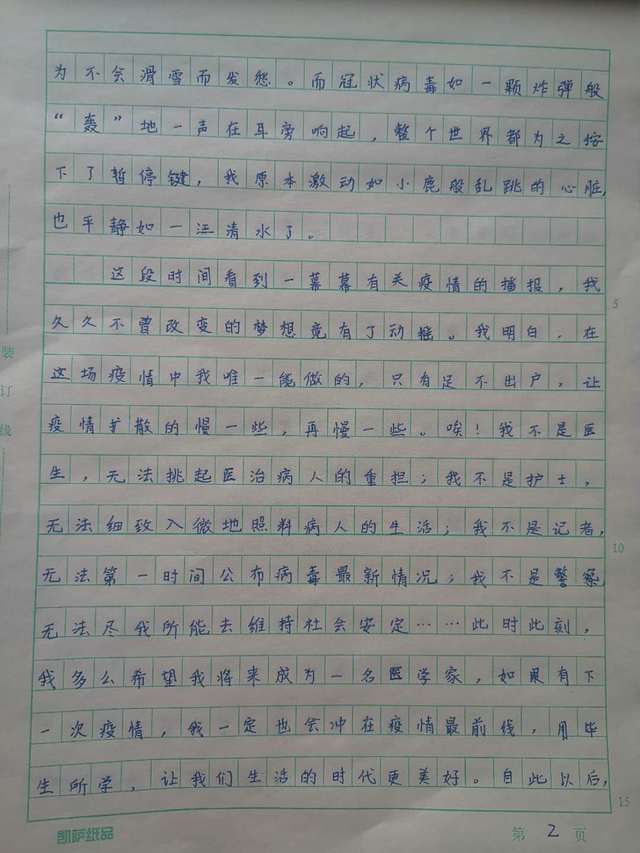 为不会滑雪而发愁。而冠状病毒如一颗炸弹般
“轰”地一声在耳旁响起，整个世界都为之按
下了暂停键，我原本激动如小鹿般乱跳的心脏，
也平静如一汪清水了。
这段时间看到一幕幕有关疫情的播报，我
5
久久不曾改变的梦想竟有了动摇。我明白，在
这场疫情中我唯一能做的，只有足不出户，让
疫情扩散的慢一些，再慢一些。唉！我不是医
生，无法挑起医治病人的重担；我不是护士，
无法细致入微地照料病人的生活；我不是记者，
10
无法第一时间公布病毒最新情况；我不是警察，
无法尽我所能去维持社会安定……此时此刻，
我多么希望我将来成为一名医学家，如果有下
一次疫情，我一定也会冲在疫情最前线，用毕
生所学，让我们生活的时代更美好。自此以后，
15
装订线
凯萨纸品
第 2 页